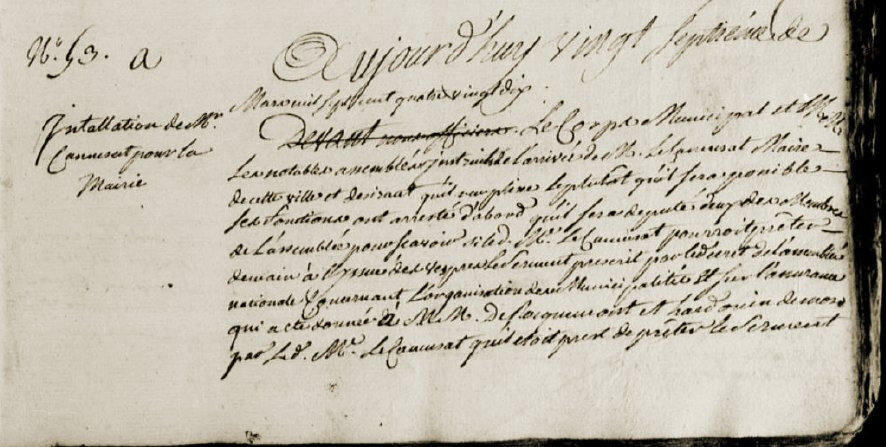 N.° 53. a
Intallation de Mr.
Camusat pour la
Mairie
Aujourd'huy vingt septieme de
Mars mil sept cent quatre vingt dix.
Devant nous officiers. Le Corps Municipal et MM.
Les notables assemblés instruits de l'arrivée de M. Le Camusat Maire
de cette ville et desirant qu'il remplisse le plutot qu'il sera possible
ses fonctions ont arresté d'abord qu'il sera deputé deux des Membres
de l'assemblée pour scavoir si led. Mr. Le Camusat pourroit prêter
demain à l'yssue des vespres le Serment prescrit par le decret de l'assemblée
nationale Concernant l'organisation des Municipalités Et sur l'assurance
qui a eté donnée à M M. De Cocquemont et hardouin de
par Led. Mr. Le Camusat qu'il etoit prest de prêter le Serment